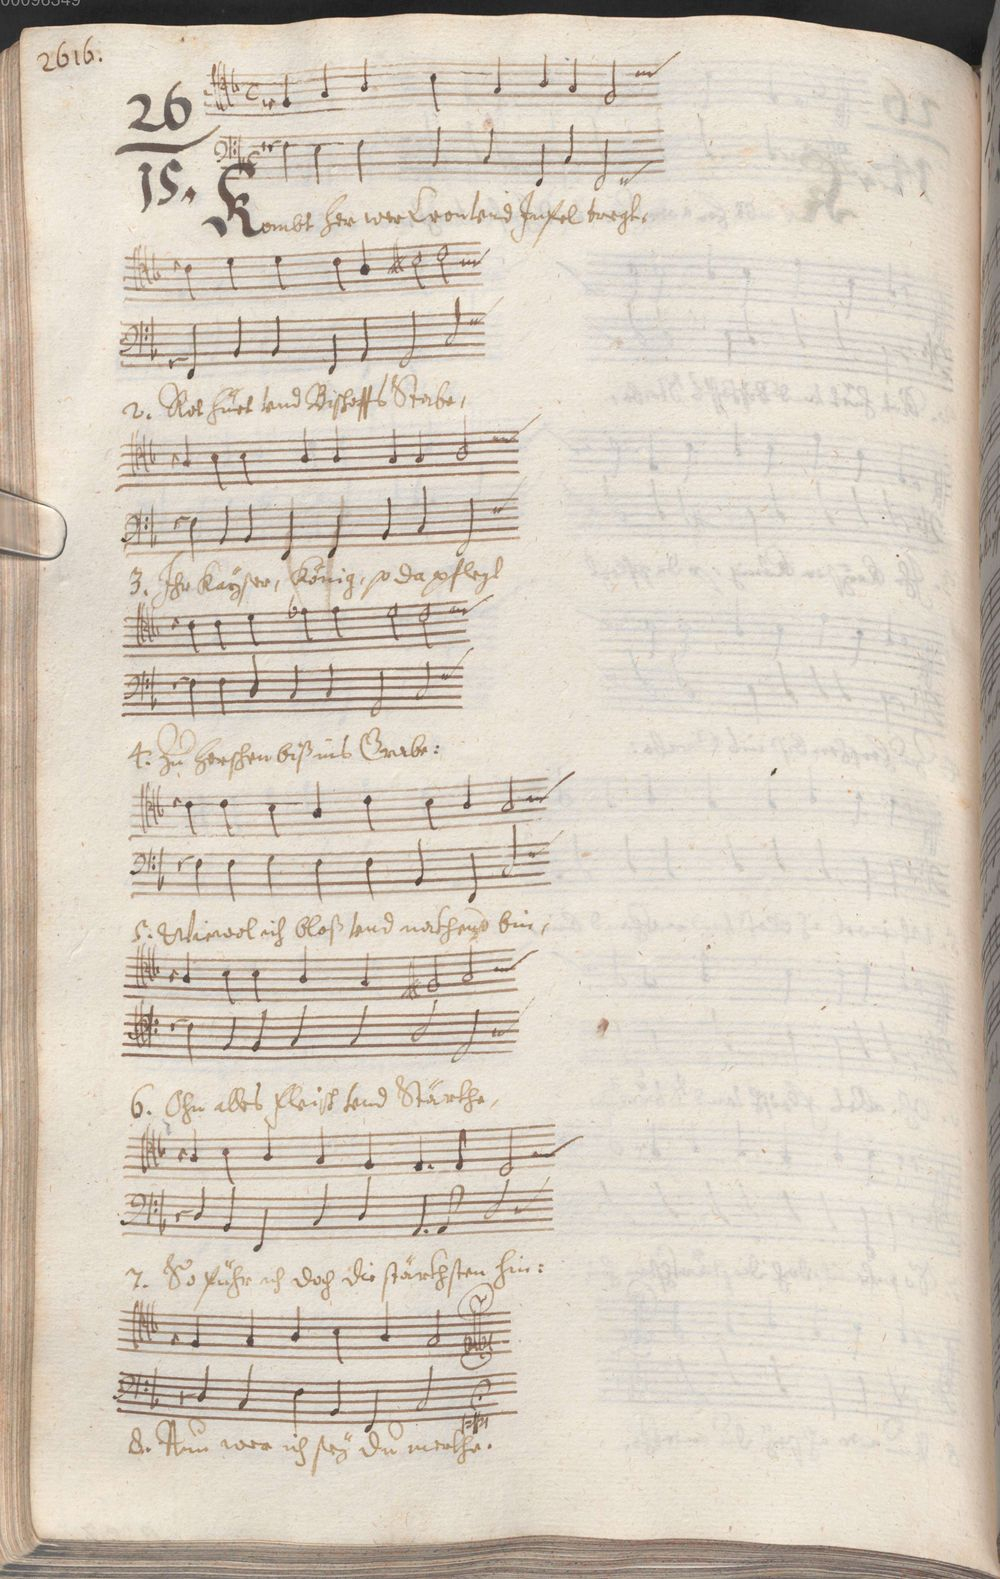 00096349
2616.
26
15.
Kombt her wer Cron vnd Infel tregt,
2. Rot huet vnd Bischoffs Stabe,
3. Ihr Kayser, König, so da pflegt
4. Zu herschen biß ins Grabe:
5. Wiewol ich bloß vnd nackhend bin,
6. Ohn alles fleisch vnd Stärkhe,
7. So führ ich doch die stärkhsten hin:
8. Nun wer ich sey du merkhe.